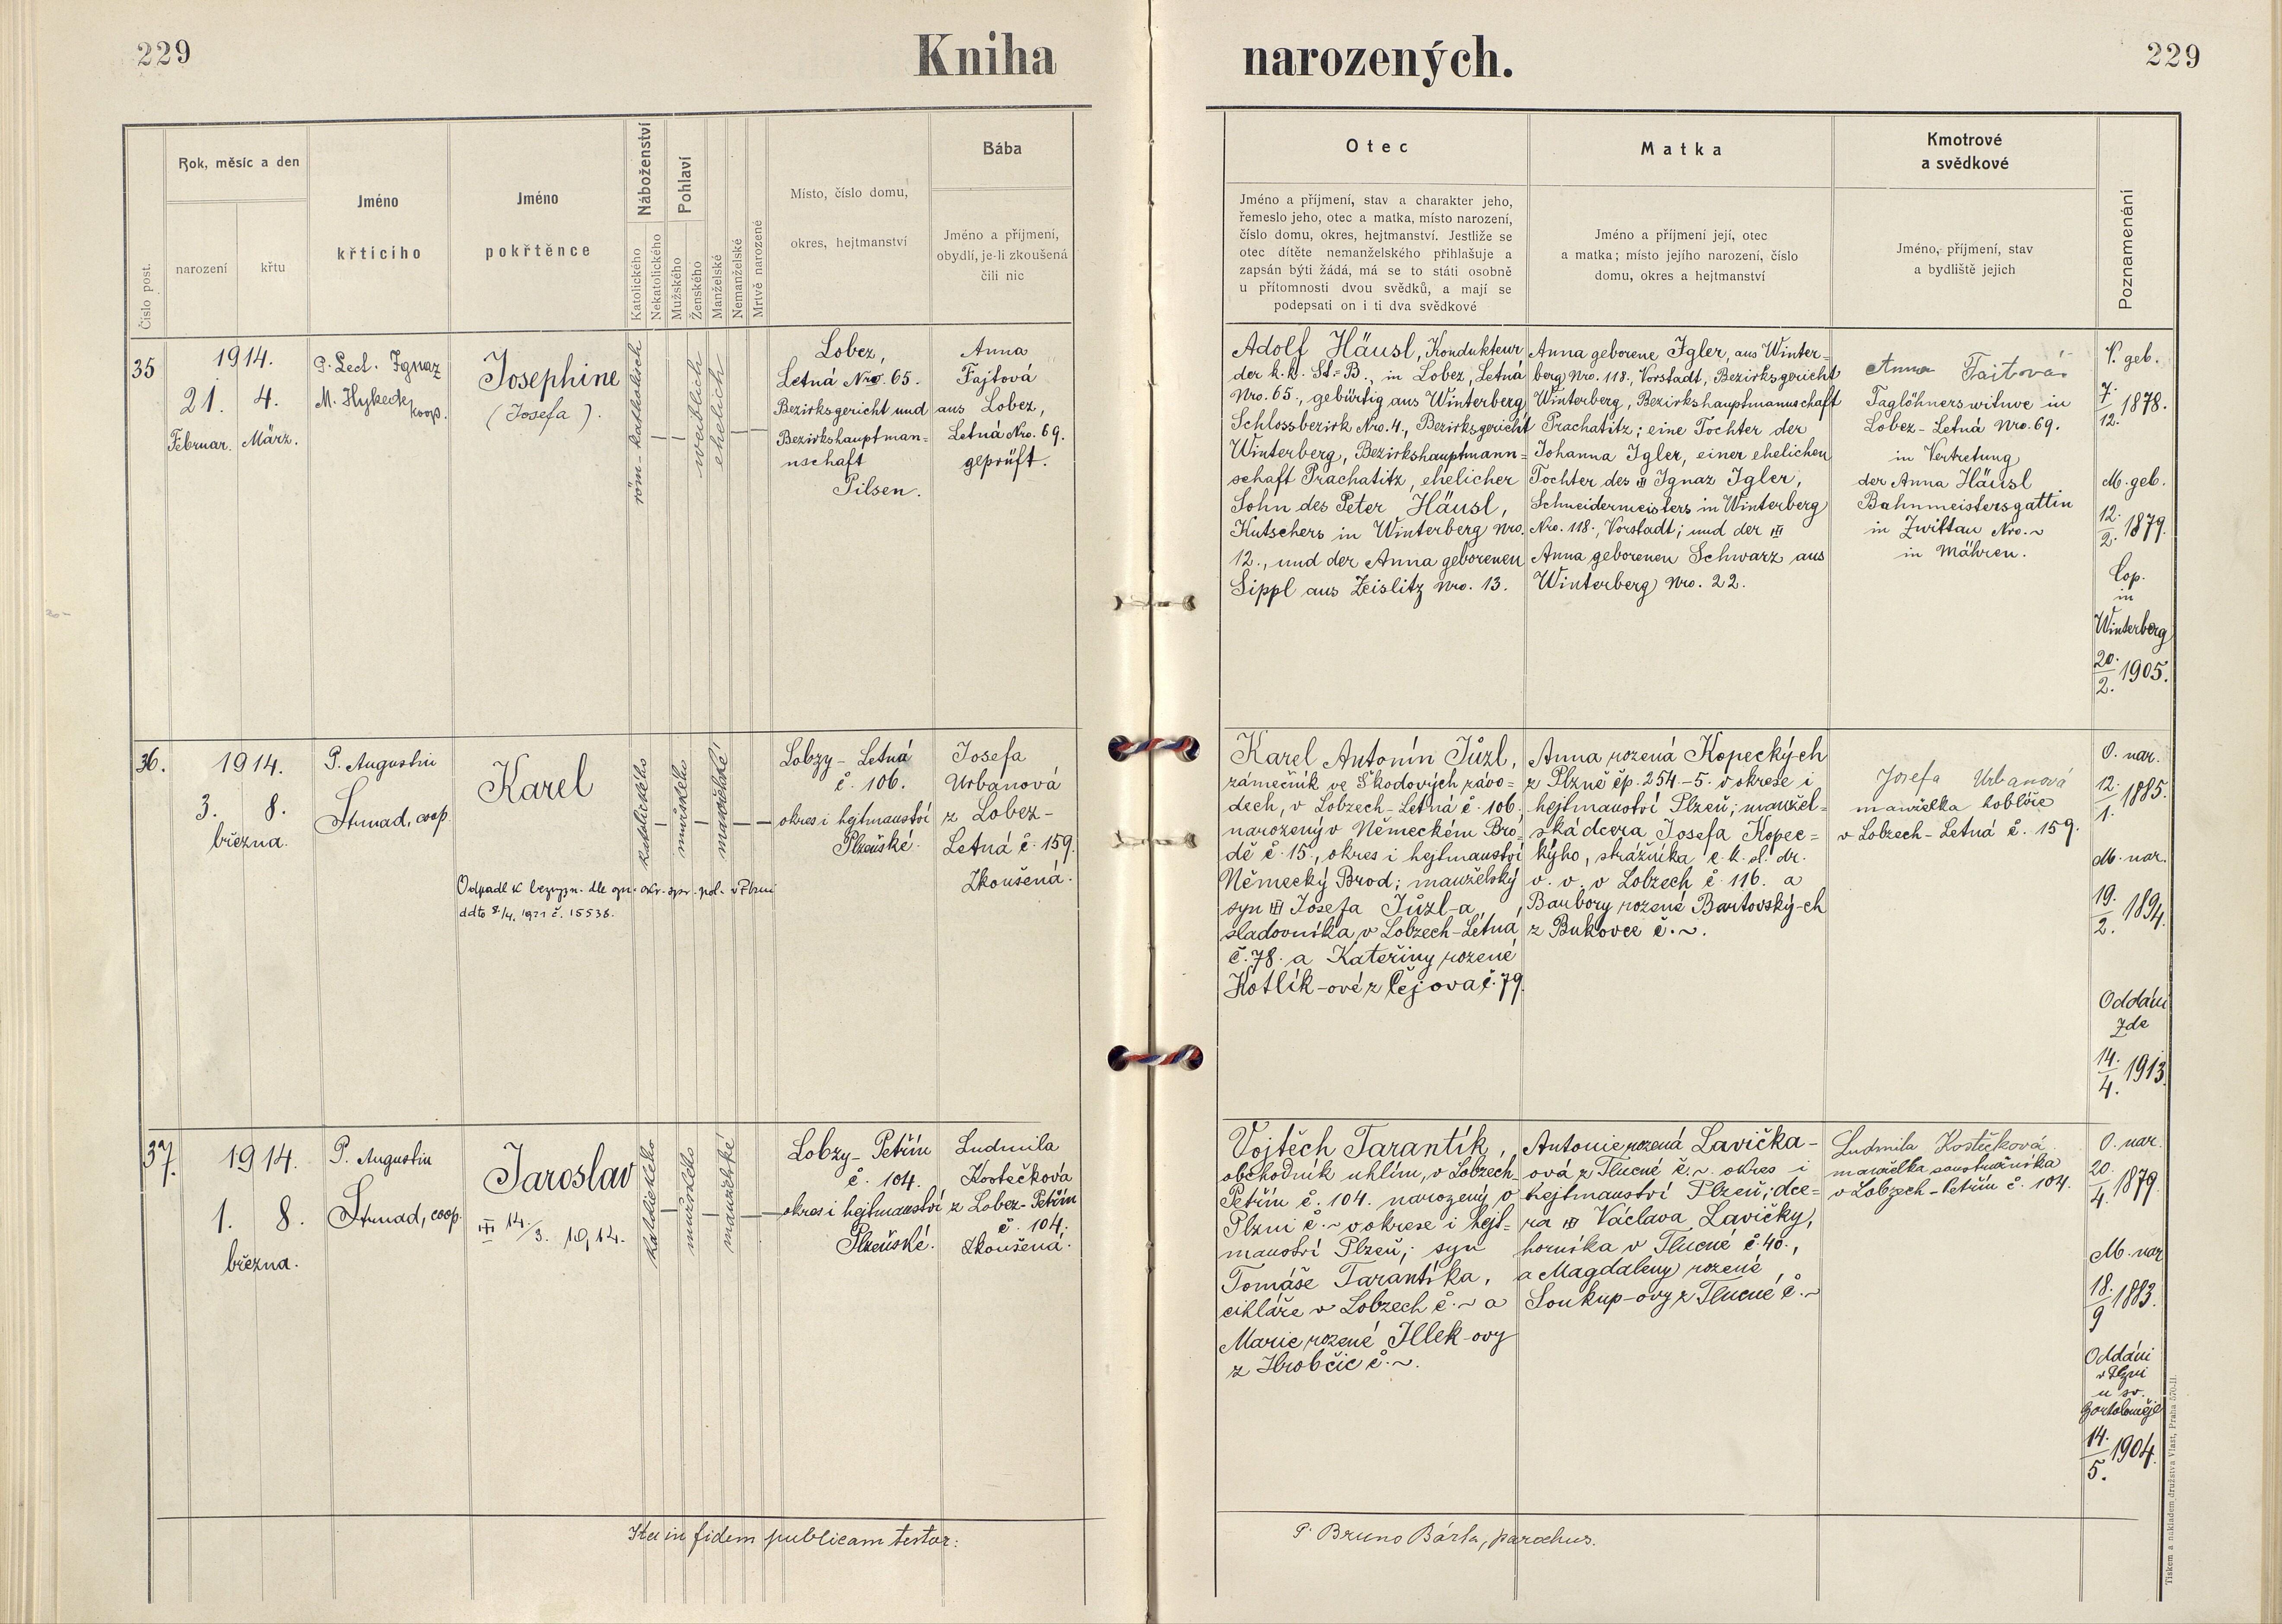 229
Kniha
narozených.
229
Číslo post.
Rok, měsíc a den
narození
křtu
Jméno
křticího
Jméno
pokřtěnce
Náboženství
Katolického
Nekatolického
Pohlaví
Mužského
Ženského
Manželské
Nemanželské
Mrtvě narozené
Místo, číslo domu,
okres, hejtmanství
Bába
Jméno a příjmení,
obydlí, je-li zkoušená
čili nic
Otec
Jméno a příjmení, stav a charakter jeho,
řemeslo jeho, otec a matka, místo narození,
číslo domu, okres, hejtmanství. Jestliže se
otec dítěte nemanželského přihlašuje a
zapsán býti žádá, má se to státi osobně
u přítomnosti dvou svědků, a mají se
podepsati on i ti dva svědkové
Matka
Jméno a příjmení její, otec
a matka; místo jejího narození, číslo
domu, okres a hejtmanství
Kmotrové
a svědkové
Jméno, příjmení, stav
a bydliště jejich
Poznamenání
35
1914.
21. 4.
Februar. März.
P. Lect. Ignaz
M. Hykeck
koop.
Josephine
(Josefa).
röm-katholisch
—
—
weiblich
ehelich
—
—
Lobez,
Letná Nro. 65.
Bezirksgericht und
Bezirkshauptman=
nschaft
Pilsen.
Anna
Fajtová
aus Lobez,
Letná Nro. 69.
geprüft.
Adolf Häusl, Kondukteur
der k.k. St.=B., in Lobez, Letná
Nro. 65., gebürtig aus Winterberg
Schlossbezirk Nro. 4., Bezirksgericht
Winterberg, Bezirkshauptmann=
schaft Prachatitz, ehelicher
Sohn des Peter Häusl,
Kutschers in Winterberg Nro.
12., und der Anna geborenen
Sippl aus Zeislitz Nro. 13.
Anna geborene Igler, aus Winter=
berg Nro. 118., Vorstadt, Bezirksgericht
Winterberg, Bezirkshauptmannschaft
Prachatitz; eine Tochter der
Johanna Igler, einer ehelichen
Tochter des Ignaz Igler,
Schneidermeisters in Winterberg
Nro. 118., Vorstadt; und der
Anna geborenen Schwarz aus
Winterberg Nro. 22.
Anna Fajtová
Taglöhnerswitwe in
Lobez-Letná Nro. 69.
in Vertretung
der Anna Häusl
Bahnmeistersgattin
in Zwittau Nro. ~
in Mähren.
V. geb.
7./12. 1878.
M. geb.
12./2. 1879.
Cop.
in
Winterberg
20./2. 1905.
36.
1914.
3. 8.
března.
P. Augustin
Strnad, coop.
Karel
Odpadl k bezvyzn. dle ozn. okr. spr. pol. v Plzni
ddto 8/4. 1921 č. 15538.
katolického
—
mužského
—
manželské
—
—
Lobzy - Letná
č. 106.
okres i hejtmanství
Plzeňské.
Josefa
Urbanová
z Lobez-
Letná č. 159.
Zkoušená.
Karel Antonín Jůzl,
zámečník ve Škodových závo=
dech, v Lobzech-Letná č. 106.
narozený v Německém Bro=
dě č. 15., okres i hejtmanství
Německý Brod; manželský
syn Josefa Jůzl-a,
sladovníka v Lobzech-Letná
č. 78. a Kateřiny rozené
Kotlík-ové z Čejova č. 79.
Anna rozená Kopeckých
z Plzně čp. 254-5. v okrese i
hejtmanství Plzeň; manžel=
ská dcera Josefa Kopec=
kýho, strážníka c. k. sl. dr.
v. v. v Lobzech č. 116. a
Barbory rozené Bartovský-ch
z Bukovce č. ~.
Josefa Urbanová
manželka koblíře
v Lobzech-Letná č. 159.
O. nar.
12./1. 1885.
M. nar.
19./2. 1894.
Oddáni
zde
14./4. 1913.
37.
1914.
1. 8.
března.
P. Augustin
Strnad, coop.
Jaroslav
14/3. 1914.
katolického
—
mužského
—
manželské
—
—
Lobzy - Petřín
č. 104.
okres i hejtmanství
Plzeňské.
Ludmila
Kostečková
z Lobez-Petřín
č. 104.
Zkoušená.
Vojtěch Tarantík,
obchodník uhlím, v Lobzech-
Petřín č. 104. narozený v
Plzni č. ~ v okrese i hejt=
manství Plzeň; syn
Tomáše Tarantíka,
cihláře v Lobzech č. ~ a
Marie rozené Illek-ovy
z Hrobčic č. ~.
Antonie rozená Lavička-
ová z Tlucné č. ~. okres i
hejtmanství Plzeň; dce=
ra Václava Lavičky,
horníka v Tlucné č. 40.,
a Magdaleny rozené
Soukup-ovy z Tlucné č. ~
Ludmila Kostečková
manželka soustružníka
v Lobzech-Petřín č. 104.
O. nar.
20./4. 1879.
M. nar
18./9 1883.
Oddáni
v Plzni
u sv.
Bartoloměje
14./5. 1904.
Ita in fidem publicam testor:
P. Bruno Bárta, parochus.
Tiskem a nákladem družstva Vlast, Praha 570-II.